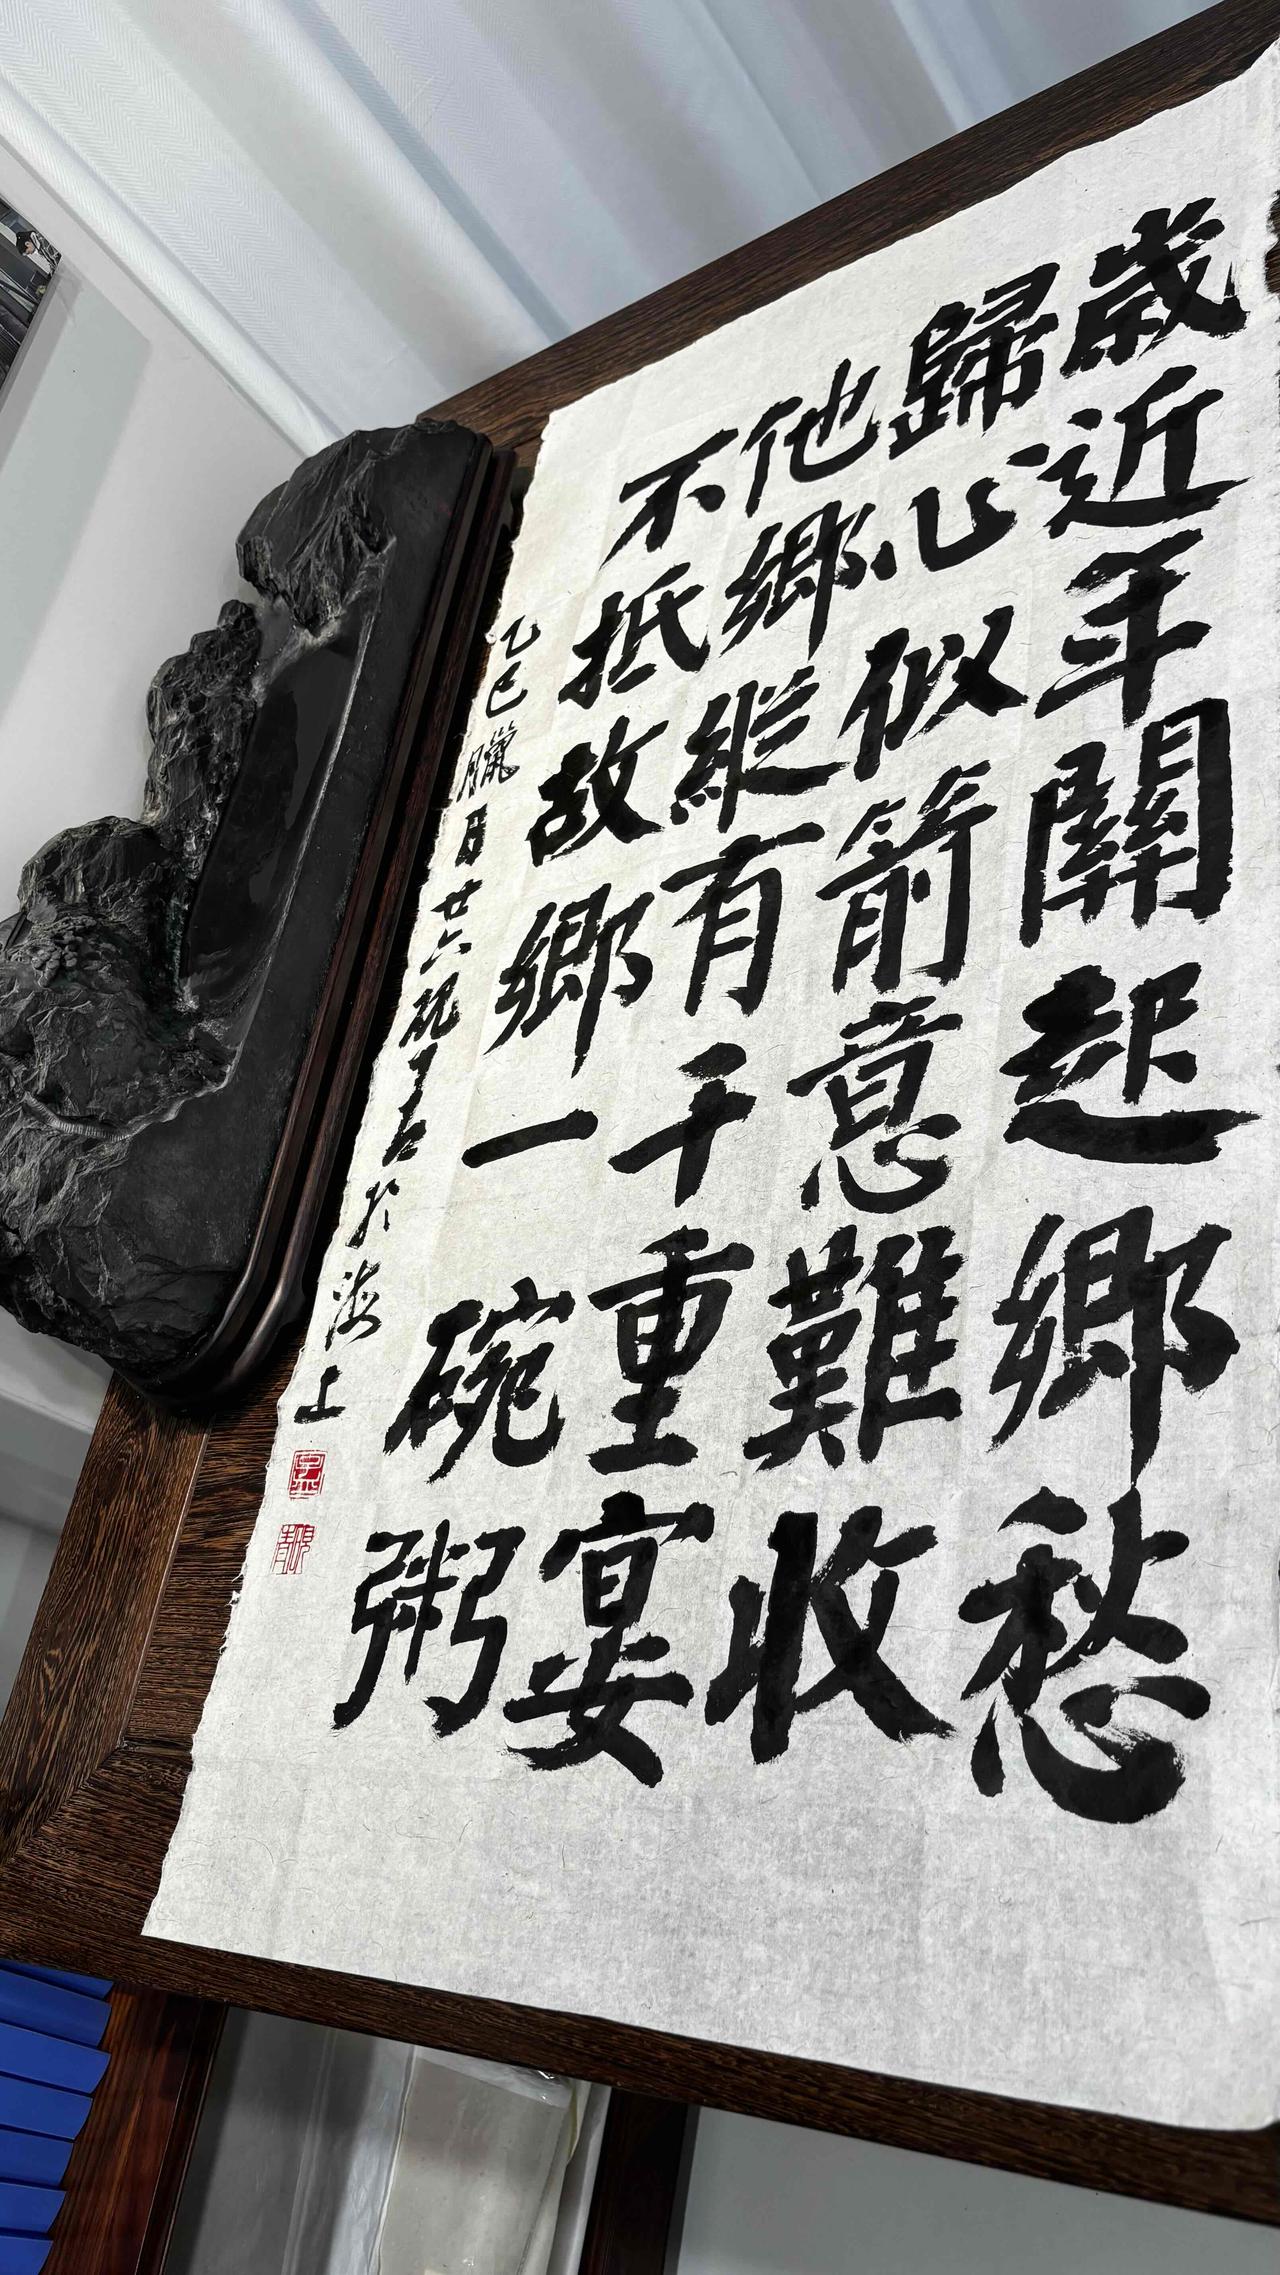 歲近年關起鄉愁
歸心似箭意難收
他鄉縱有千重宴
不抵故鄉一碗粥
乙巳臘月廿六硯青於海上